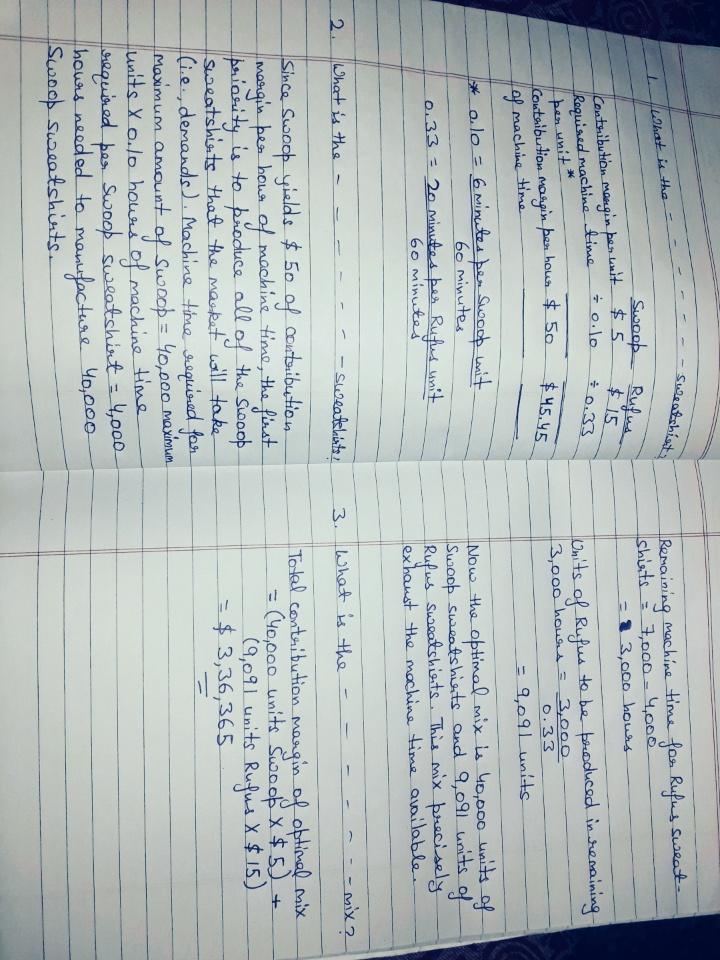 1. What is the - - - - - - - sweatshirts?
Swoop Rufus
Contribution margin per unit $ 5 $ 15
Required machine time ÷ 0.10 ÷ 0.33
per unit *
Contribution margin per hour $ 50 $ 45.45
of machine time
* 0.10 = 6 minutes per Swoop unit
60 minutes
0.33 = 20 minutes per Rufus unit
60 minutes
2. What is the - - - - - - - sweatshirts?
Since Swoop yields $ 50 of contribution
margin per hour of machine time, the first
priority is to produce all of the Swoop
sweatshirts that the market will take
(i.e., demands). Machine time required for
maximum amount of Swoop = 40,000 maximum
units X 0.10 hours of machine time
required per Swoop sweatshirt = 4,000
hours needed to manufacture 40,000
Swoop Sweatshirts.
Remaining machine time for Rufus sweat-
shirts = 7,000 - 4,000
= 3,000 hours
Units of Rufus to be produced in remaining
3,000 hours = 3,000
0.33
= 9,091 units
Now the optimal mix is 40,000 units of
Swoop sweatshirts and 9,091 units of
Rufus sweatshirts. This mix precisely
exhaust the machine time available.
3. What is the - - - - - - - mix?
Total contribution margin of optimal mix
= (40,000 units Swoop X $ 5) +
(9,091 units Rufus X $ 15)
= $ 3,36,365